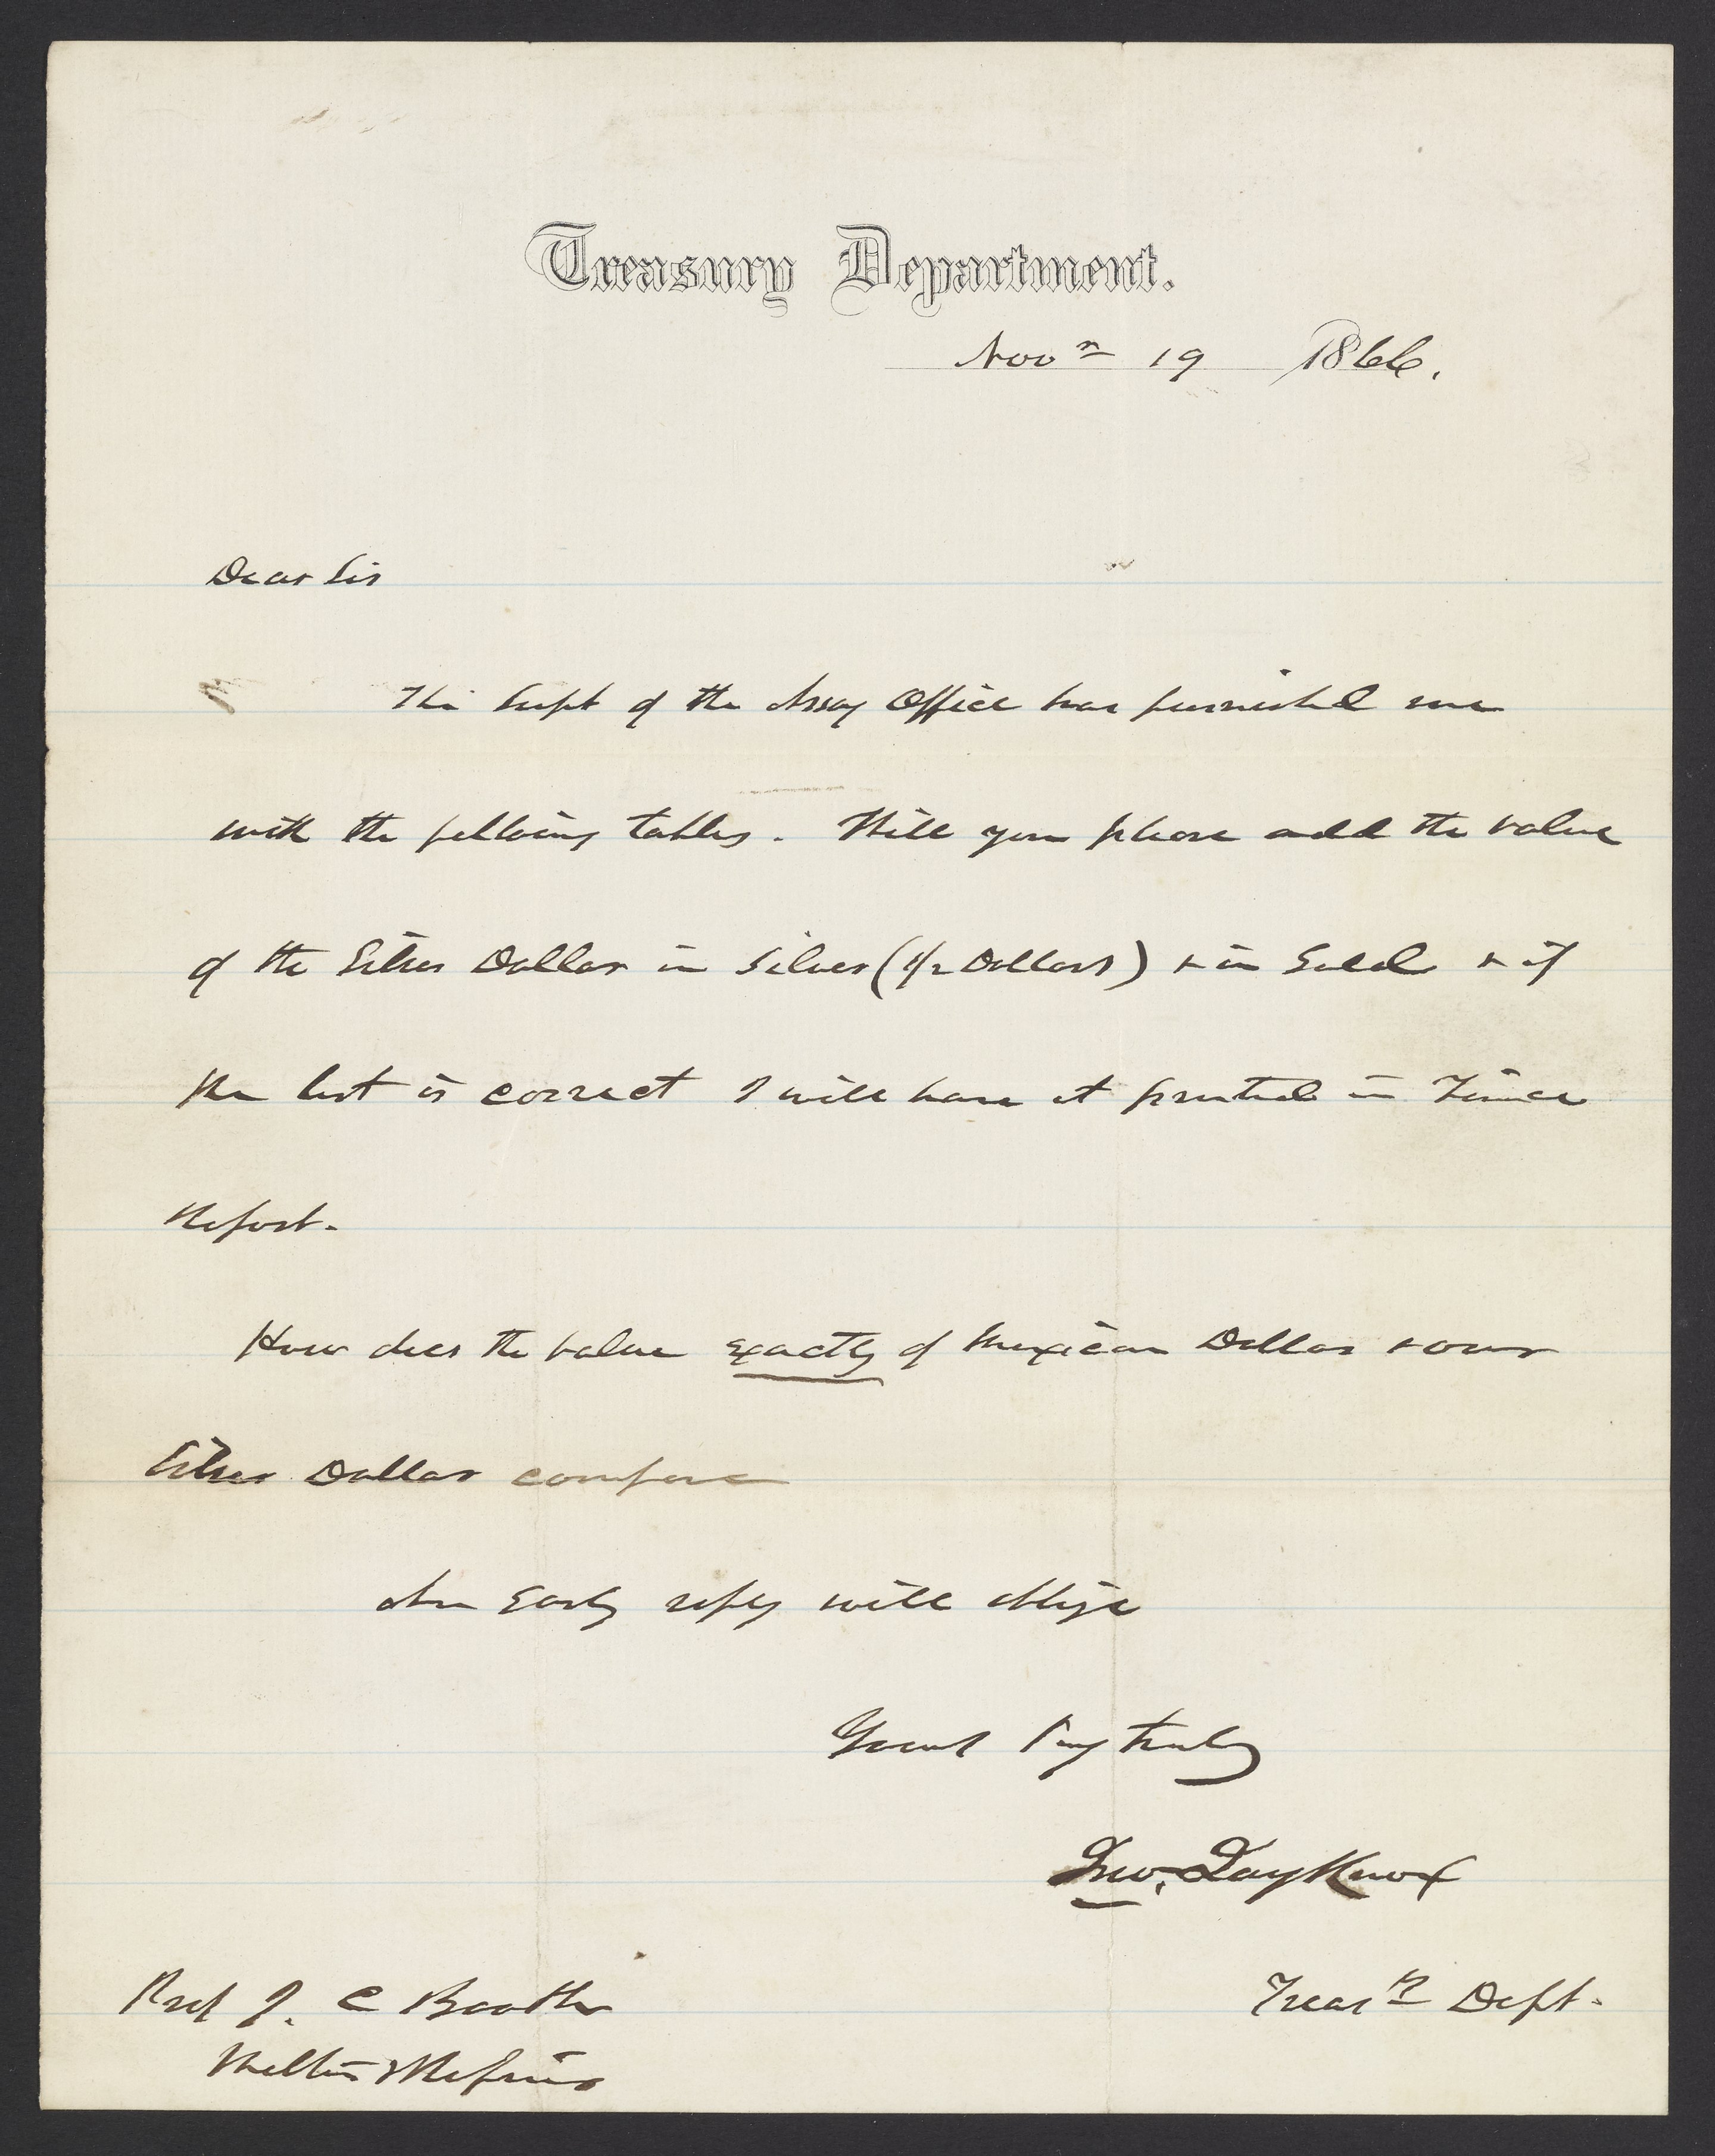 Treasury Department.
Novr 19 1866.
Dear Sir
The Supt of the Assay Office has furnished me
with the following tables. Will you please add the value
of the Silver Dollar in Silver (1/2 Dollars) & in Gold & if
the list is correct I will have it printed in Finance
Report.
How does the value exactly of Mexican Dollar & our
Silver Dollar compare
An Early reply will oblige
Yours Very truly
Jno. Jay Knox
Treasy Dept.
Prof J. C Booth
Melter & Refiner